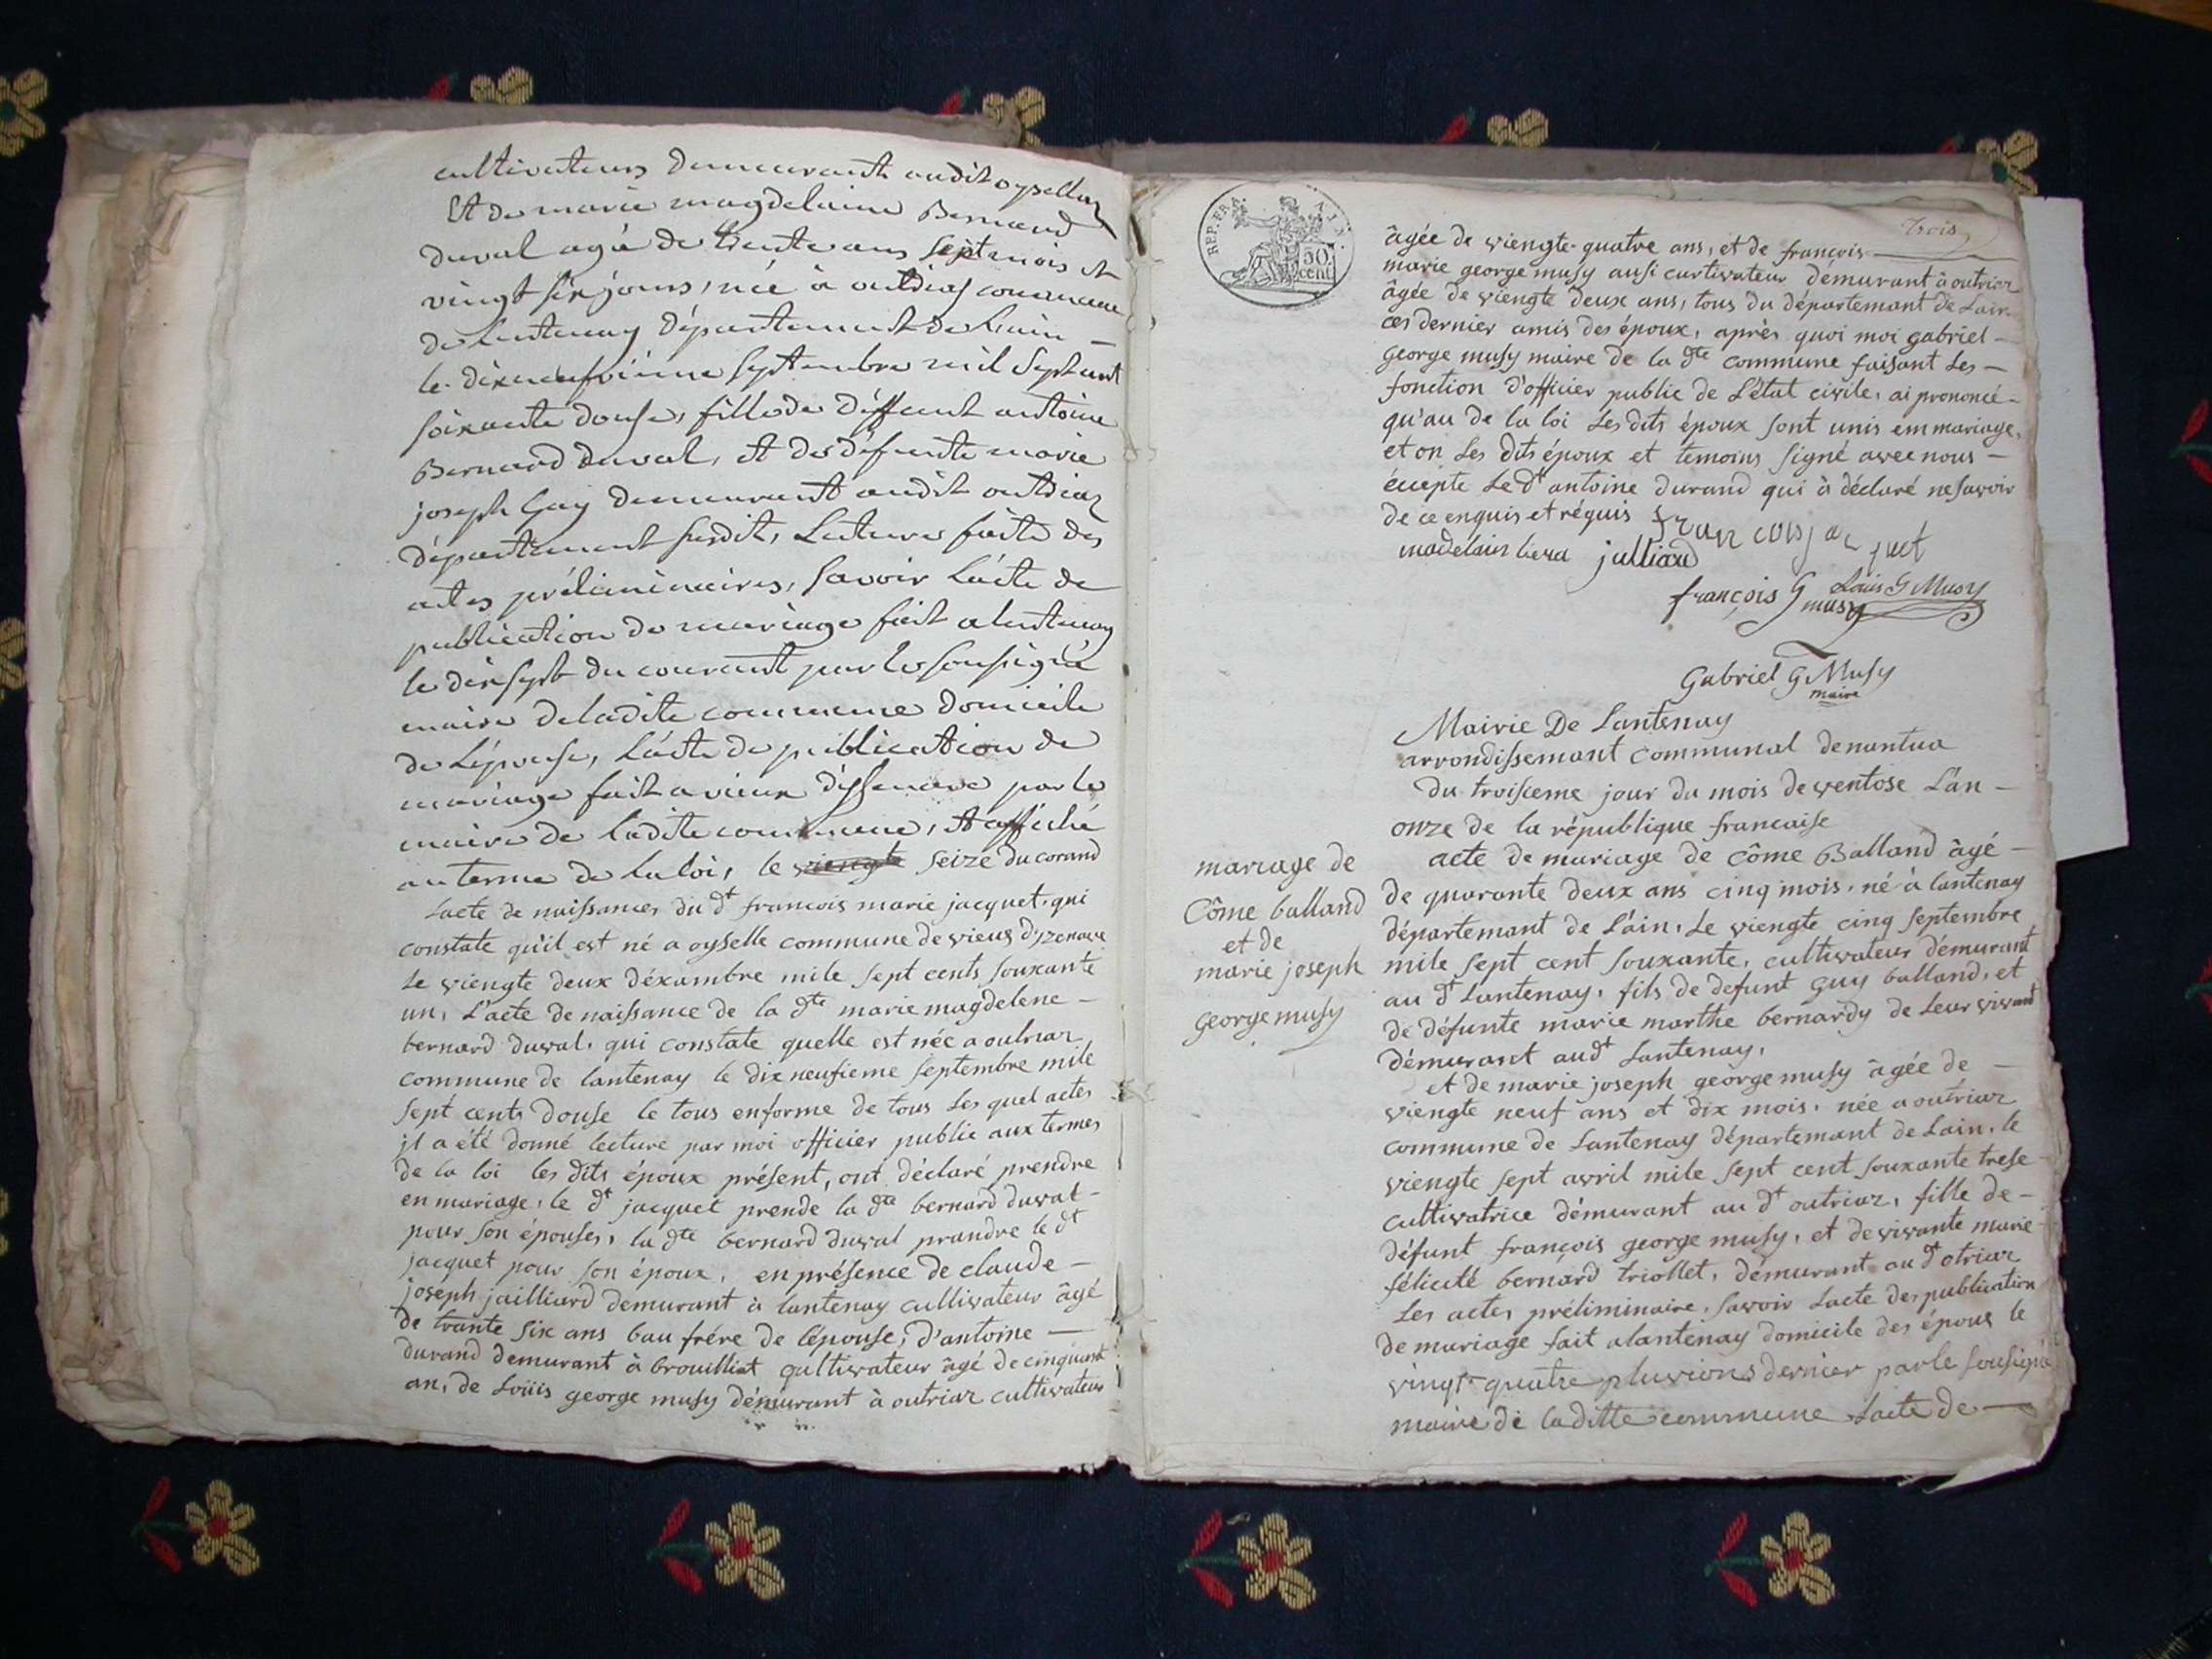 cultivateurs demeurant audit oysellaz
Et de marie magdelaine Bernard
duval agée de trente ans sept mois et
vingt six jours, née à outriaz commune
de lantenay département de l'ain —
le dixneufvième septembre mil sept cent
soixante douse, fille de deffunt antoine
Bernard duval, et de défunte marie
joseph Guy demeurant audit outriaz
département susdit, Lecture faite des
actes préliminaires, savoir l'acte de
publication de mariage fait a lantenay
le dixsept du courant par le sousigné
maire de ladite commune domicile
de l'épouse, l'acte de publication de
mariage fait a vieux dissenave par le
maire de ladite commune, et affiché
au terme de la loi, le viengte seize du corand
Lacte de naissances du dt francois marie jacquet, qui
constate qu'il est né a oyselle commune de vieux d'yzenave
le viengte deux déxambre mile sept cents souxante
un, L'acte de naissance de la dte marie magdelene —
bernard duval, qui constate quelle est née a outriaz
commune de lantenay le dix neufieme septembre mile
sept cents douse le tous enforme de tous les quel actes
il a été donné lecture par moi officier public aux termes
de la loi les dits époux présent, ont déclaré prendre
en mariage, le dt jacquet prende la dte bernard duval -
pour son épouses, la dte bernard duval prandre le dt
jacquet pour son époux, en présence de claude —
joseph jailliard demurant à lantenay cultivateur âgé
de trante six ans bau frére de lépouse, d'antoine —
durand demurant à brouilliat qultivateur âgé de cinquant
an, de Loüis george musy démurant à outriaz cultivateur
REP. FRA.
50.
cent
trois
âgée de viengte-quatre ans, et de françois —
marie george musy ausi curtivateur démurant à outriaz
âgée de viengte deux ans, tous du départemant de Lain
ces dernier amis des époux, après quoi moi gabriel —
george musy maire de la dte commune faisant les —
fonction d'officier public de L'état civile, ai prononcé -
qu'au de la loi les dits époux sont unis em mariage,
et on les dits époux et temoins signé avec nous —
éxcepte le dt antoine durand qui à déclaré ne savoir
de ce enquis et réquis francois jacquet
julliard
françois G musy Loüis G Musy
Gabriel G Musy
maire
Mairie De Lantenay
arrondissemant communal denantua
du troisieme jour du mois de ventose L'an —
onze de la république francaise
mariage de
Côme balland
et de
marie joseph
george musy
acte de mariage de Côme Balland âgé —
de quarante deux ans cinq mois, né à lantenay
départemant de L'ain, le viengte cinq septembre
mile sept cent souxante, cultivateur démurant
au dt Lantenay, fils de defunt Guy balland, et
de défunte marie marthe bernardy de leur vivant
démurant audt Lantenay,
et de marie joseph george musy âgée de —
viengte neuf ans et dix mois, née a outriaz
commune de Lantenay départemant de Lain, le
viengte sept avril mile sept cent souxante trese
cultivatrice démurant au dt outriaz, fille de —
défunt françois george musy, et de vivante marie -
félicité bernard triollet, démurant au dt otriaz
Les actes préliminaire, savoir Lacte des publication
de mariage fait alantenay domicile des épous le
vingt quatre pluvions dernier par le sousigné
maire de laditte commune Lacte de —